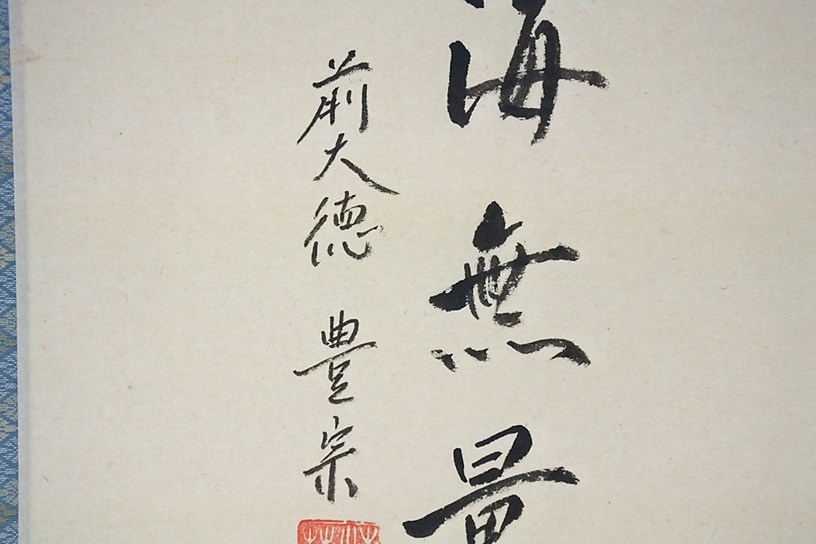 海無量
前大徳 豊宗